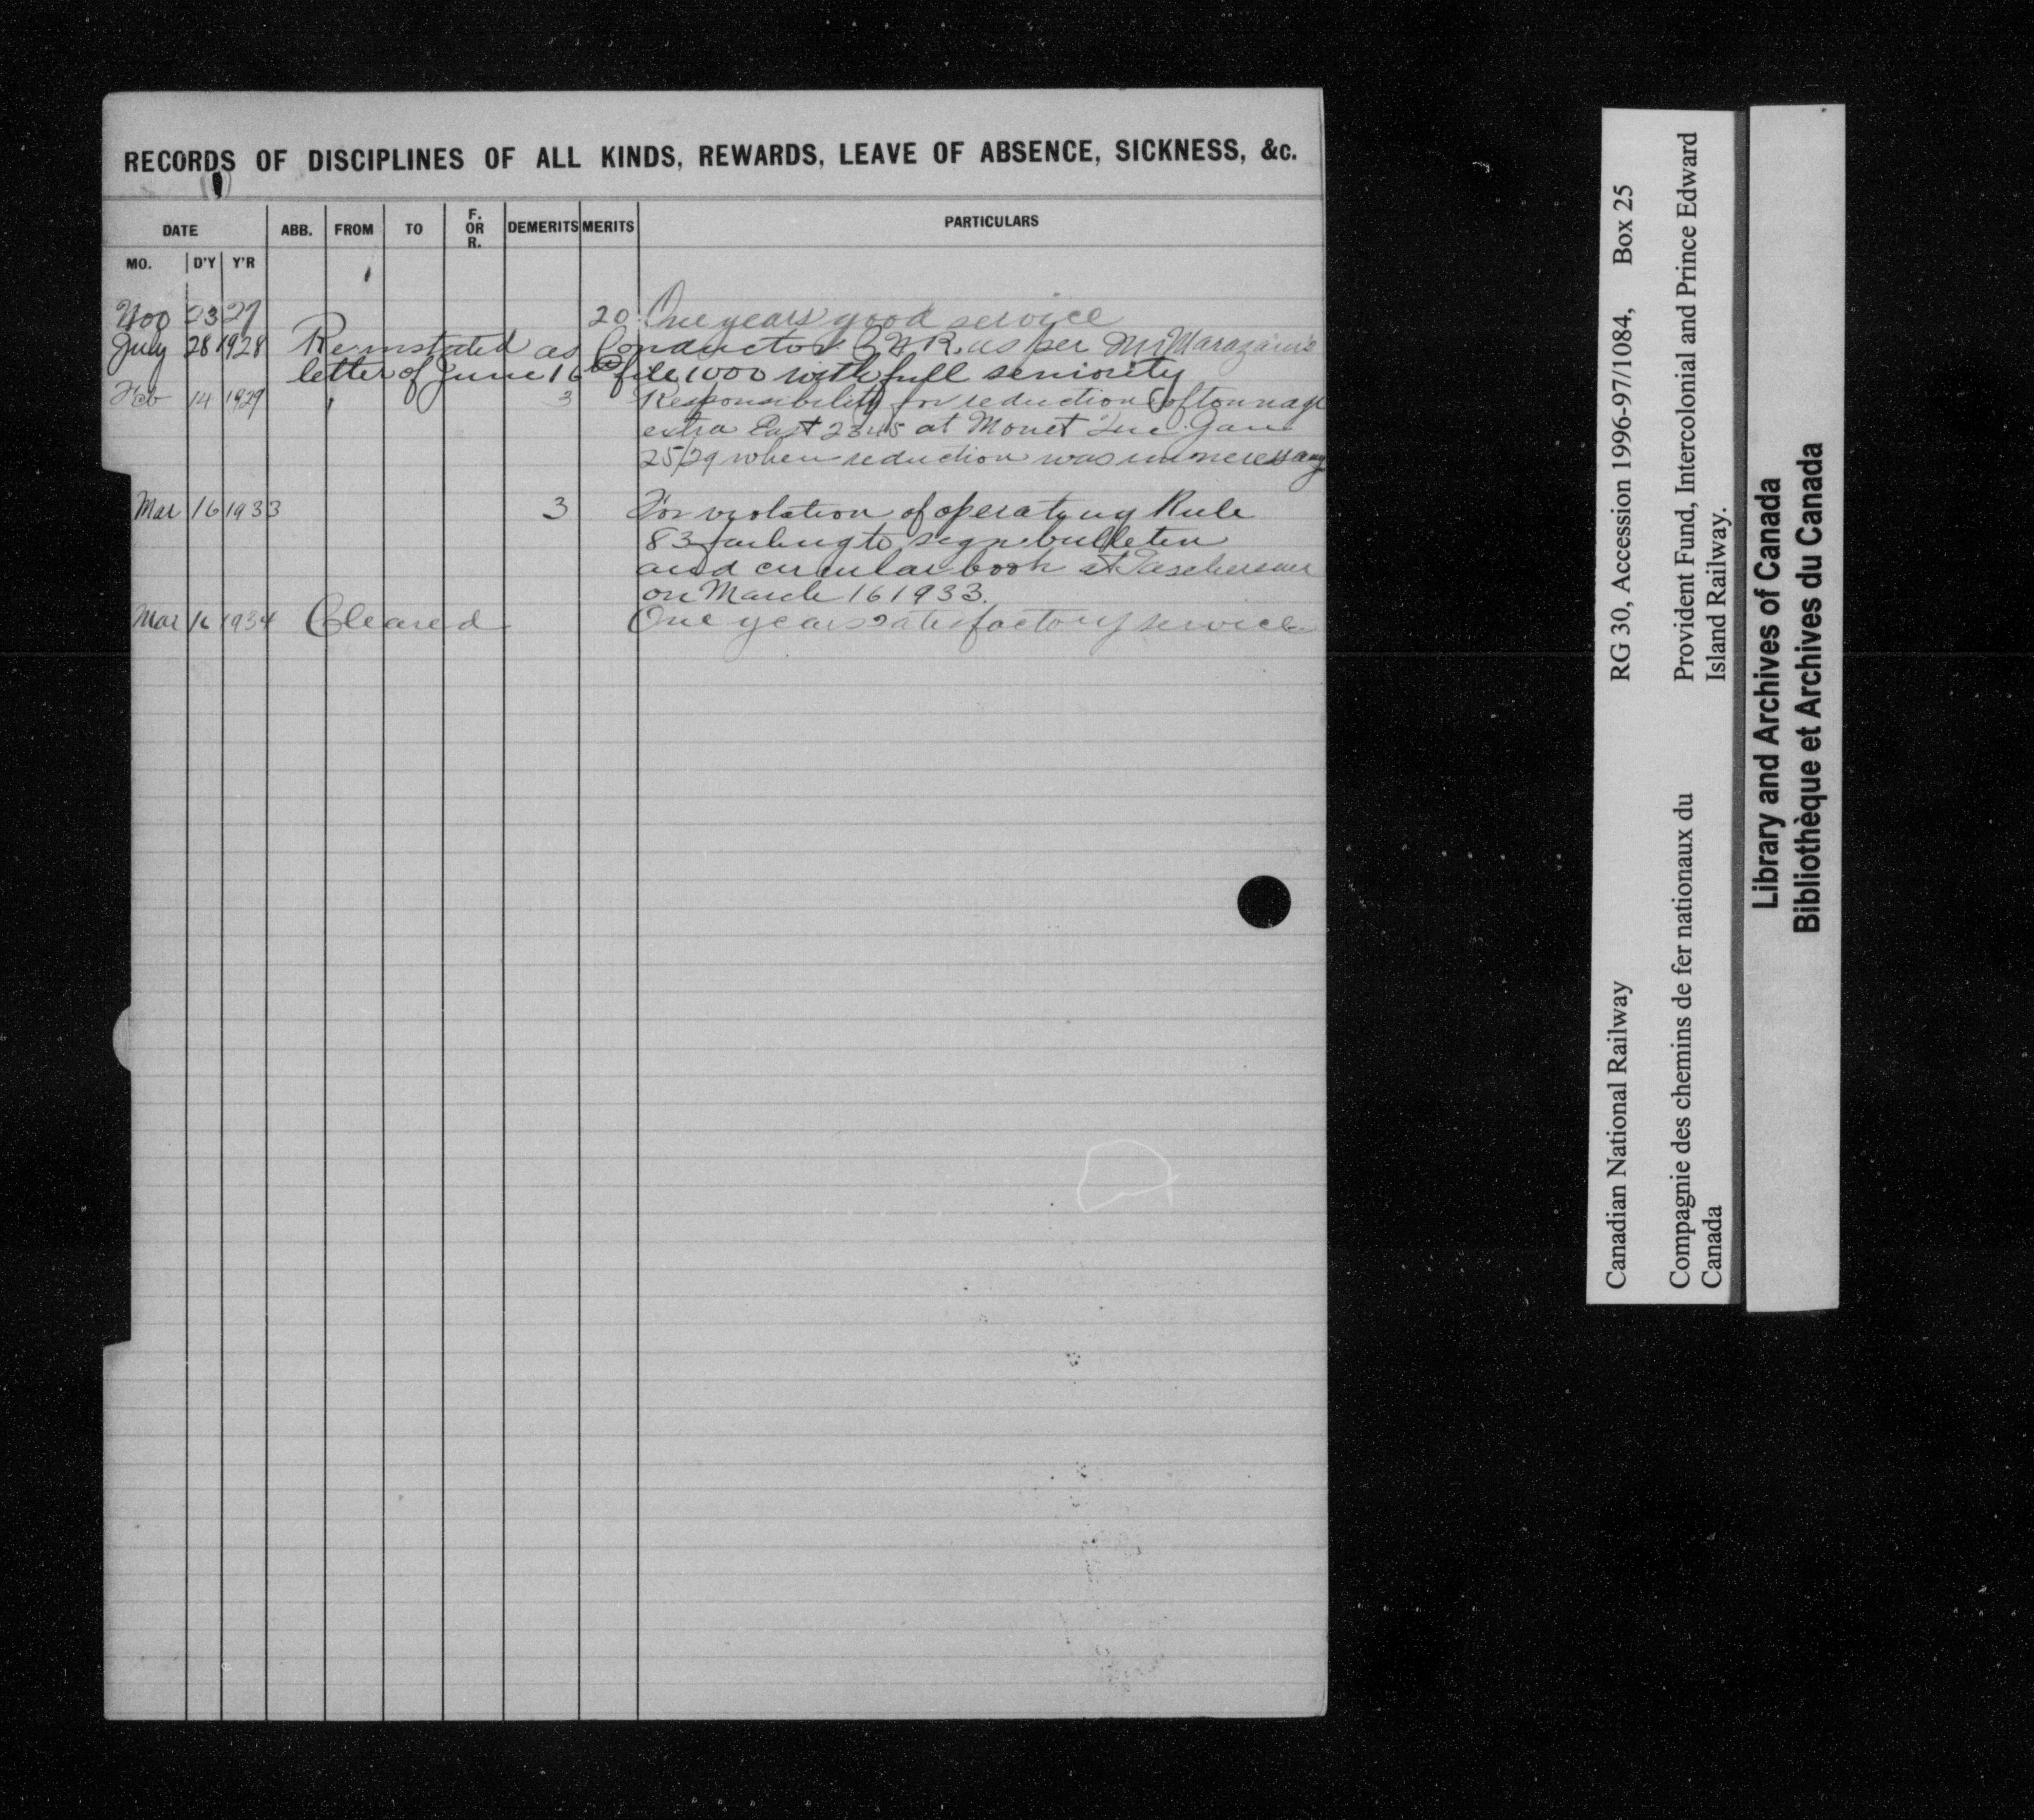 RECORDS OF DISCIPLINES OF ALL KINDS, REWARDS, LEAVE OF ABSENCE, SICKNESS, &c.
DATE ABB. FROM TO F. OR R. DEMERITS MERITS PARTICULARS
MO. D'Y Y'R
Nov 23 27 20 One years good service
July 28 1928 Reinstated as Conductor C.N.R. as per Mr
letter of June 16th file 1000 with full seniority
Feb 14 1929 3 Responsibility for reduction of tonnage
extra East 2345 at Monet Que. Jan
25/29 when reduction was unnecessary
Mar 16 1933 3 For violation of operating Rule
83 failing to sign bulletin
and circular book at Taschereau
on March 16 1933.
Mar 16 1934 Cleared One years satisfactory service
Canadian National Railway RG 30, Accession 1996-97/1084, Box 25
Compagnie des chemins de fer nationaux du Provident Fund, Intercolonial and Prince Edward
Canada Island Railway.
Library and Archives of Canada
Bibliothèque et Archives du Canada